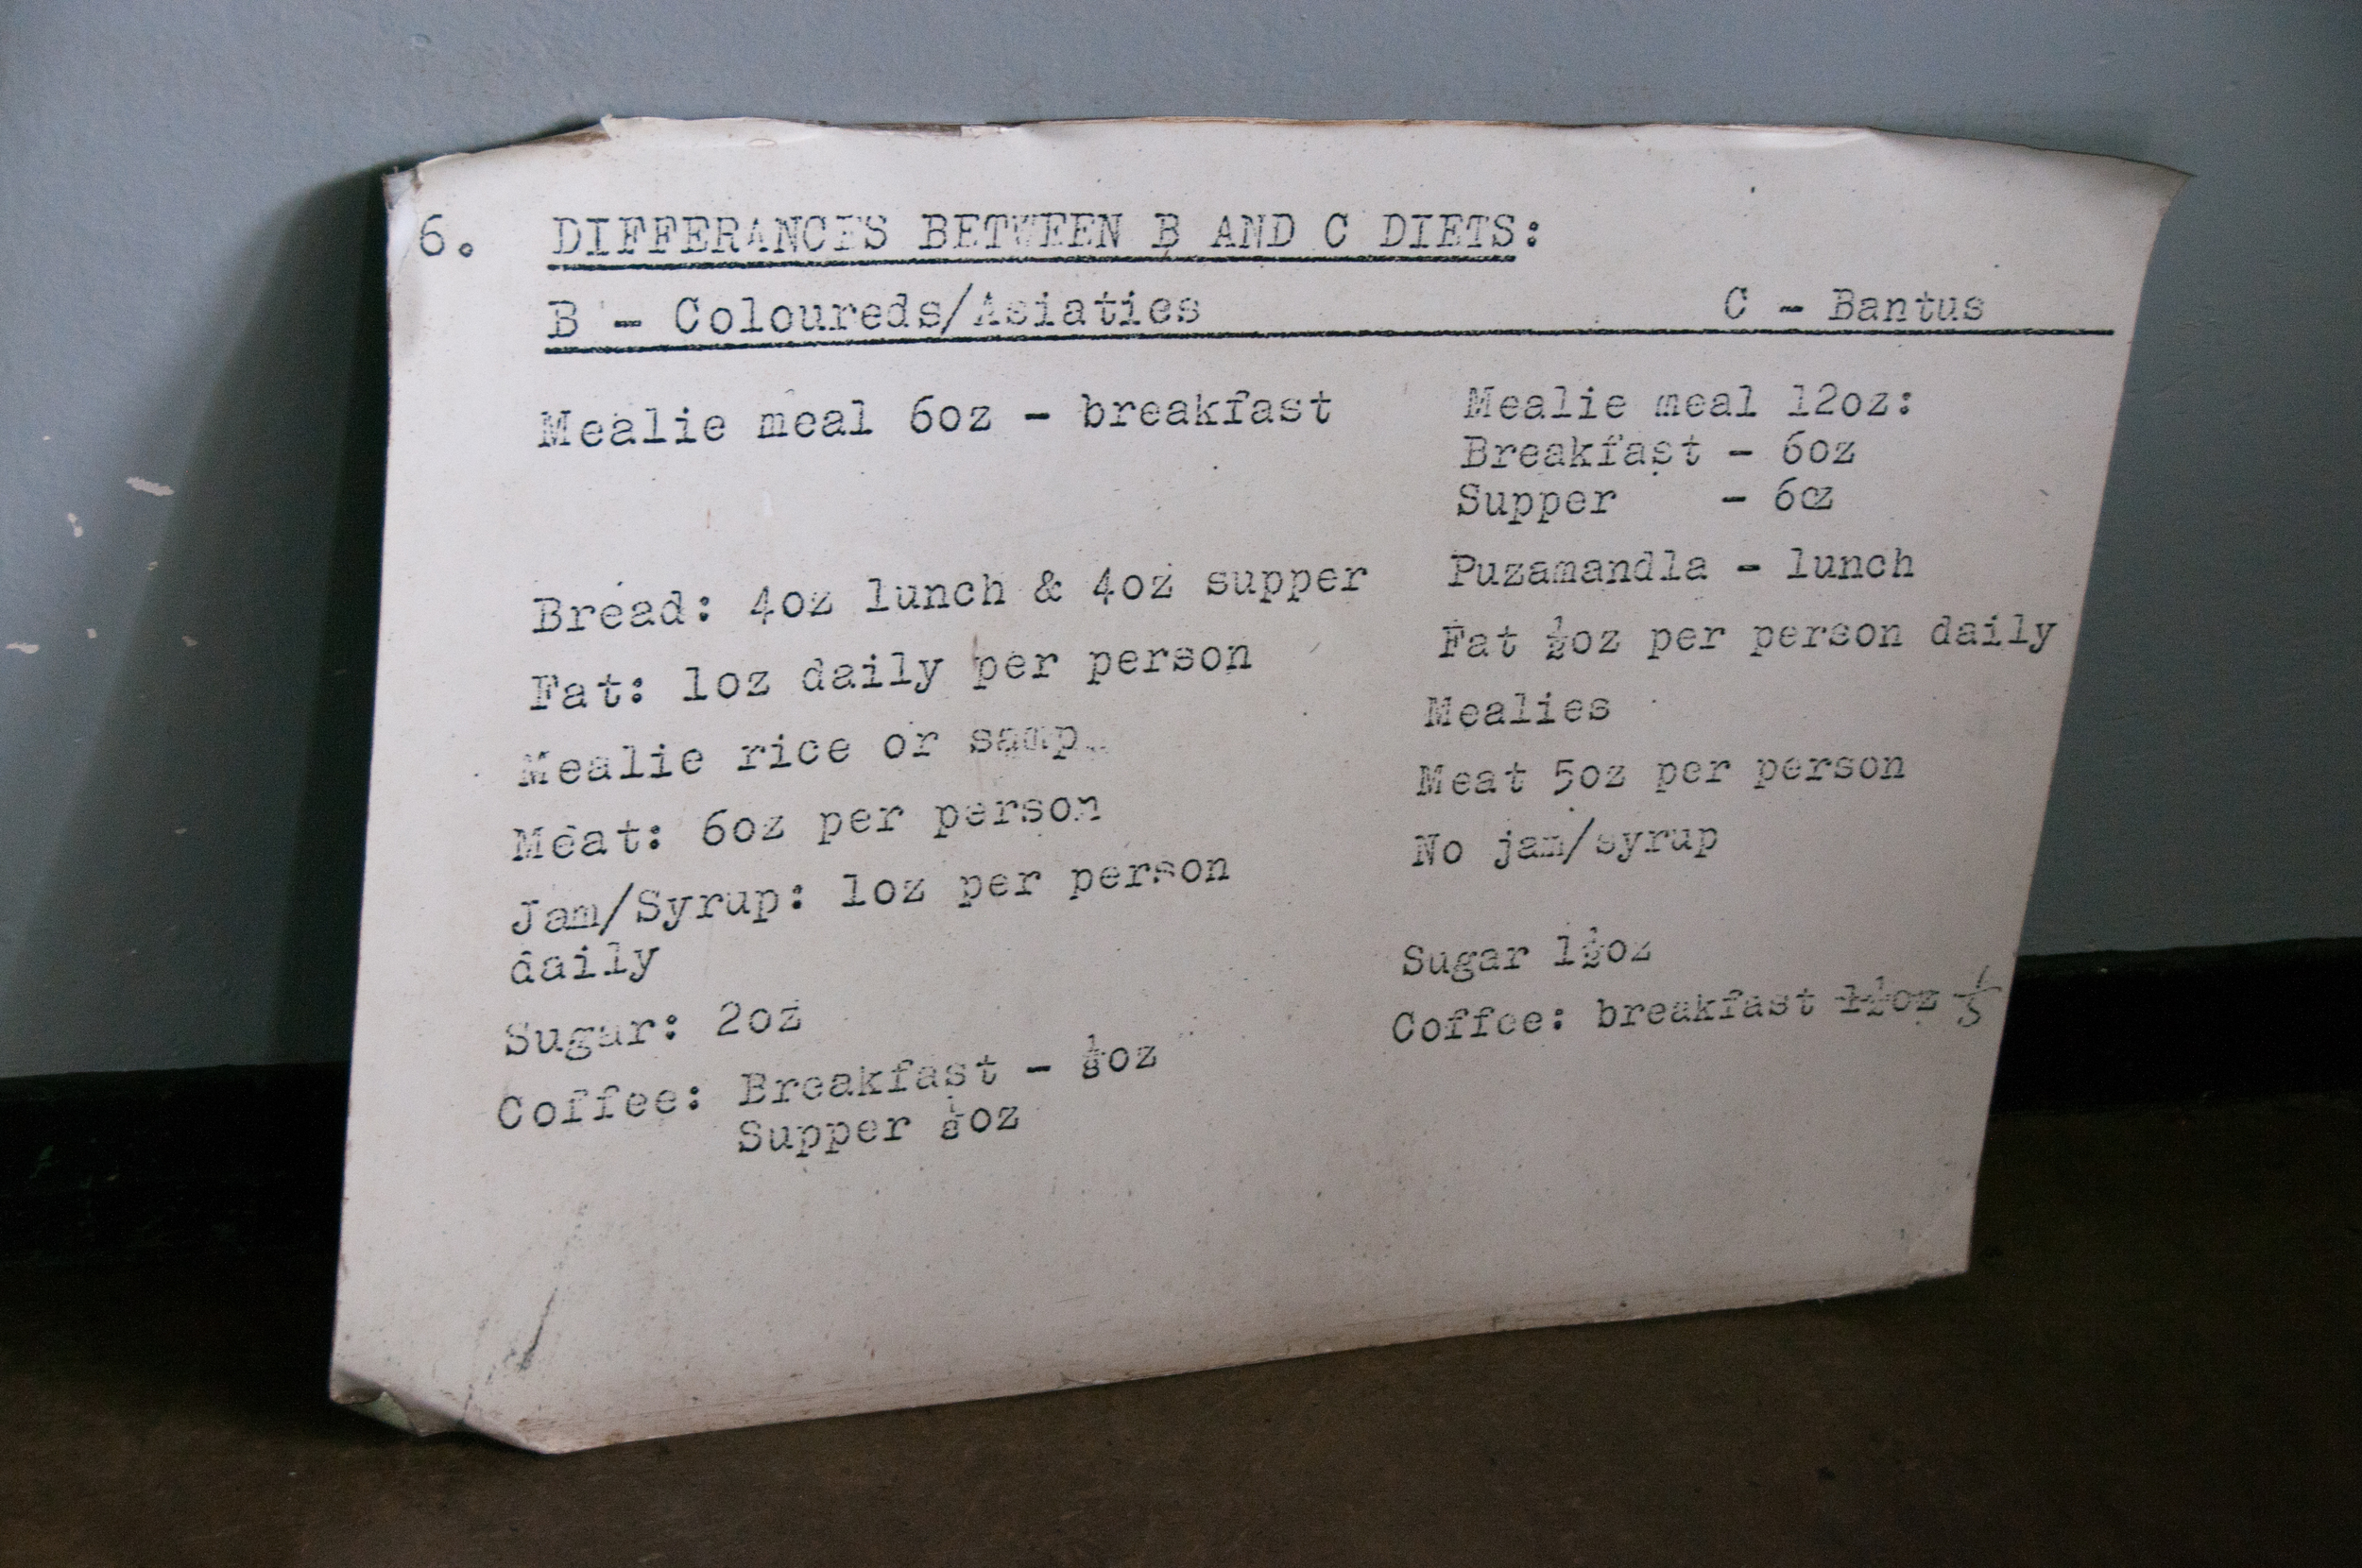 6. DIFFERANCES BETWEEN B AND C DIETS:
B - Coloureds/Asiaties
C - Bantus
Mealie meal 6oz - breakfast
Bread: 4oz lunch & 4oz supper
Fat: 1oz daily per person
Mealie rice or samp
Meat: 6oz per person
Jam/Syrup: 1oz per person
daily
Sugar: 2oz
Coffee: Breakfast - ⅛oz
Supper ⅛oz
Mealie meal 12oz:
Breakfast - 6oz
Supper - 6oz
Puzamandla - lunch
Fat ½oz per person daily
Mealies
Meat 5oz per person
No jam/syrup
Sugar 1½oz
Coffee: breakfast 1½oz